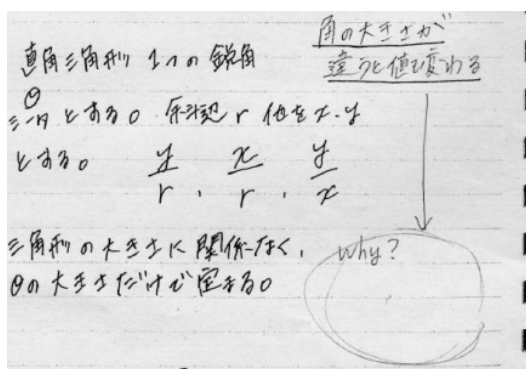 直角三角形 1つの鋭角
θ
シータ とする。斜辺 r 他を x.y
とする。 y/r , x/r , y/x
三角形の大きさに関係なく、
θの大きさだけで定まる。
角の大きさが
違うと値も変わる
why?